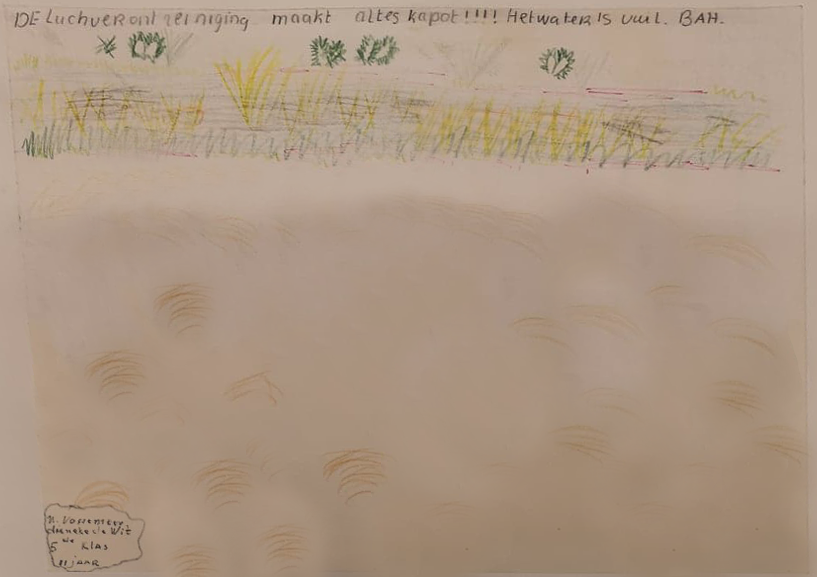 DE Luchverontreiniging maakt alles kapot!!!! Het water is vuil. BAH.
N. Vossemeer
de Wit
5de Klas
11 jaar